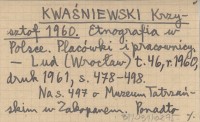 KWAŚNIEWSKI Krzy-
sztof 1960. Etnografia w
Polsce. Placówki i pracownicy
— Lud (Wrocław) t. 46, r. 1960,
druk 1961, s. 478-498.
Na s. 497 o Muzeum Tatrzań-
skim w Zakopanem. Ponadto